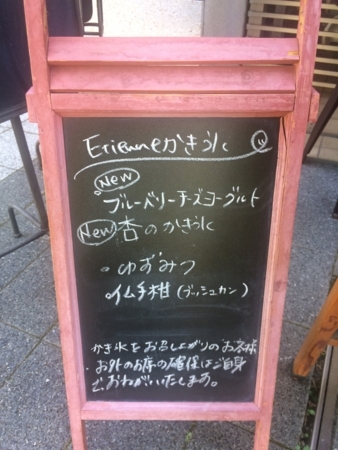 Etienneかき氷
New
ブルーベリーチーズヨーグルト
New 杏のかき氷
・ゆずみつ
・仏手柑(ブッシュカン)
かき氷をお召し上がりのお客様
お外のお席の確保はご自身
で、おねがいいたします。